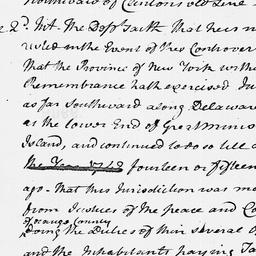 Northward of Cartons old Line
2d. Int. The Depst. saith That he is n
ured in the Event of the Controver
That the Province of New York withi
Remembrance hath exercised Ju
as far Southward along Delaware
as the lower End of Great Minis
Island, and continued to do so till a
the Year 1748 fourteen or fifteen
ago. That this Jurisdiction was ma
from Justices of the peace and Co
of orange County
doing the Duties of their several O
and the Inhabitants paying Ta